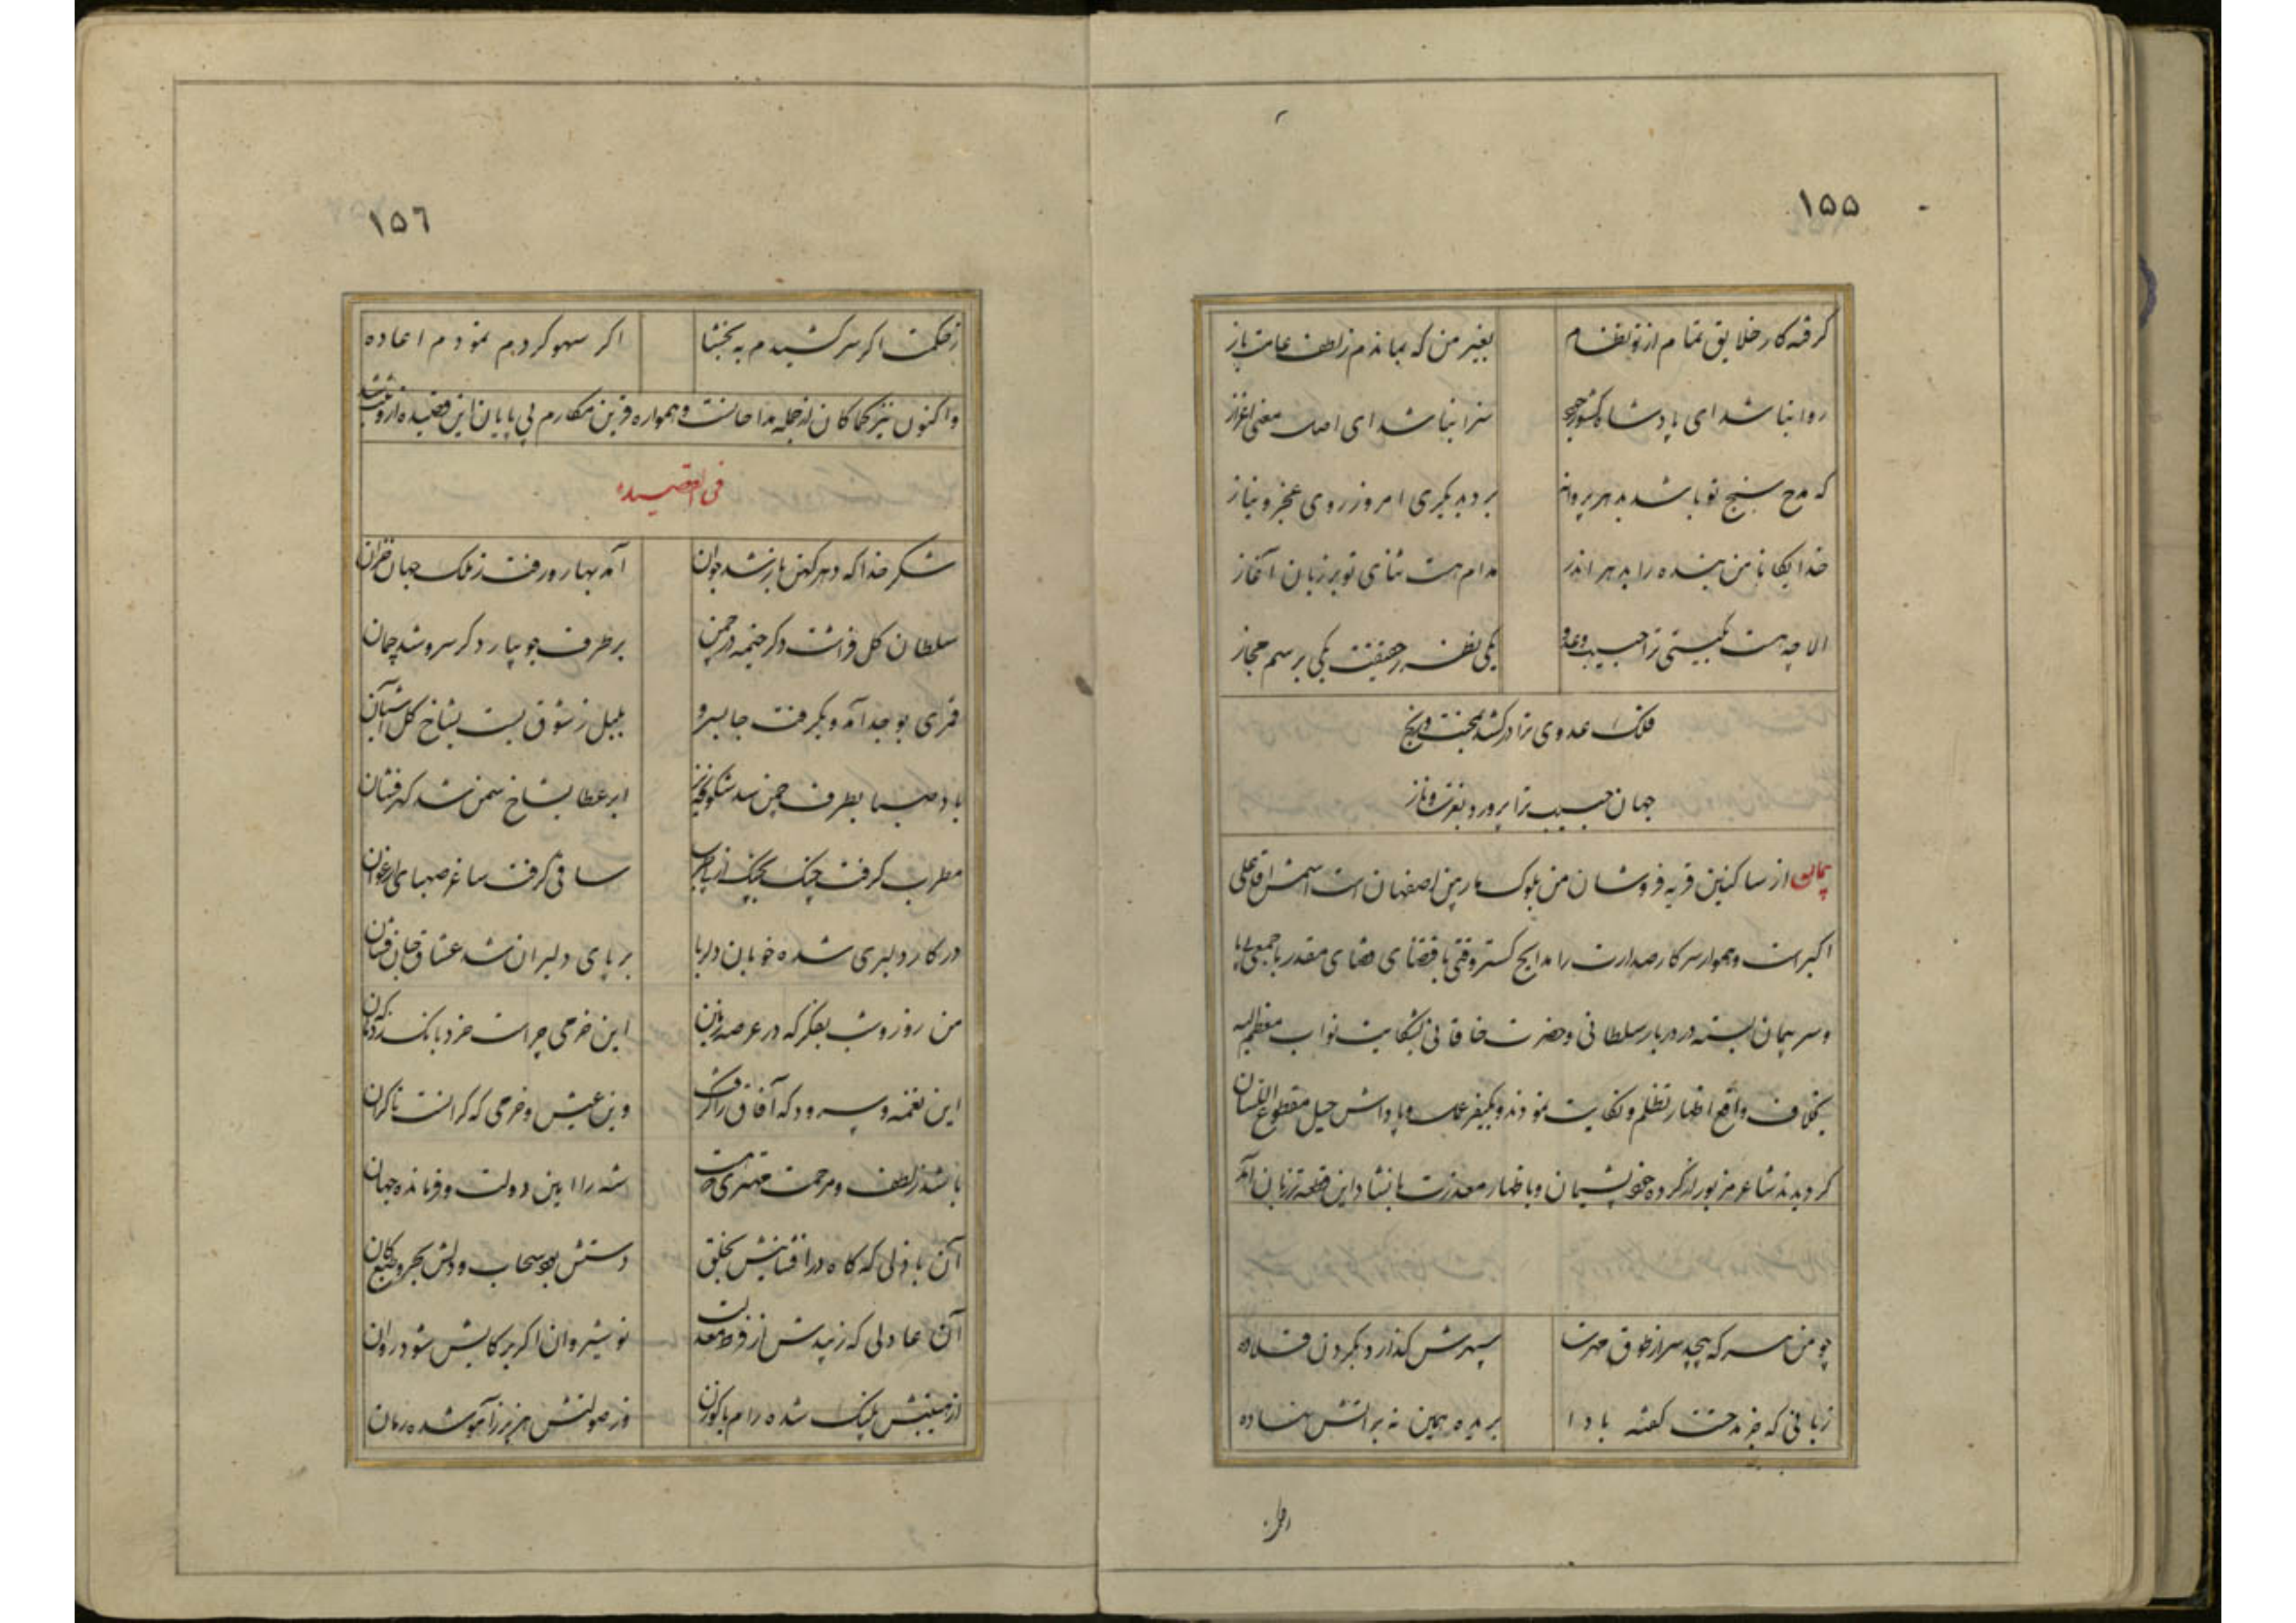 ۱۵۵
گرفته کار خلایق تمام از تو نظام
بغیر من که بماندم ز لطف عامت باز
روا نباشد ای پادشاه کشور
سزا نباشد ای اصل معنی اعزاز
که مدح سنج تو باشد بدهر پروانه
برد بدیگری امروز روی عجز و نیاز
خدایگانا من بنده را بدهر اندر
مدام هست ثنای تو بر زبان آغاز
الا چه هست بگیتی ترا حبیب و عدو
یکی بطرز حقیقت یکی برسم مجاز
فلک عدوی ترا در کشد بمحنت و رنج
جهان حبیب ترا پرورد بنعمت و ناز
پیمان از ساکنین قریه فروشان من بلوک ماربین اصفهان است اسمش آقا علی
اکبر است و هموار سرکار صدارت را مدایح گستر وقتی باقتضای قضای مقدر با جمعی
و سر پیمان بسته در دربار سلطانی و حضرت خاقانی بشکایت نواب معظم الیه
بخلاف واقع اظهار تظلم و شکایت نمودند و بکیفر عمل و پاداش حیل مقطوع اللسان
گردیدند شاعر مزبور از کرده خود پشیمان و باظهار معذرت بانشاد این قطعه تر زبان آمد
چو من هر که پیچد سر از طوق مهرت
سپهرش گذارد بگردن قلاده
زبانی که جز مدحتت گفته بادا
بریده همین نه بر آتش نهاده
۱۵۶
ز حکمت اگر سر کشیدم به بخشا
اگر سهو کردم نمودم اعاده
و اکنون نیز کماکان از جمله مداحانست و همواره قرین مکارم بی پایان این قصیده از وی
فی القصیده
شکر خدا که دهر کهن باز شد جوان
آمد بهار و رفت ز ملک جهان خزان
سلطان گل فراشت دگر خیمه در چمن
بر طرف جویبار دگر سرو شد چمان
قمری بوجد آمد و بگرفت جا بسرو
بلبل ز شوق بست بشاخ گل آشیان
باد صبا بطرف چمن شد شکوفه ریز
ابر عطا بشاخ سمن شد گهر فشان
مطرب گرفت چنگ بچنگ از پی طرب
ساقی گرفت ساغر صهبای ارغوان
در کار دلبری شده خوبان دلربا
بر پای دلبران شده عشاق جان فشان
من روز و شب بفکر که در عرصه زمین
این خرمی چراست خرد بانگ زد که
این نغمه و سرود که آفاق را گرفت
وین عیش و خرمی که کرانست تا کران
باشد ز لطف و مرحمت مهتری که هست
شه را امین دولت و فرمانده جهان
آن باذلی که گاه در افشانیش بخلق
دستش بود سحاب و دلش بحر و طبع کان
آن عادلی که زیبدش از فرط معدلت
نوشیروان اگر برکابش شود روان
از هیبتش پلنگ شده رام با گوزن
وز صولتش هزبر ز آهو شده رمان